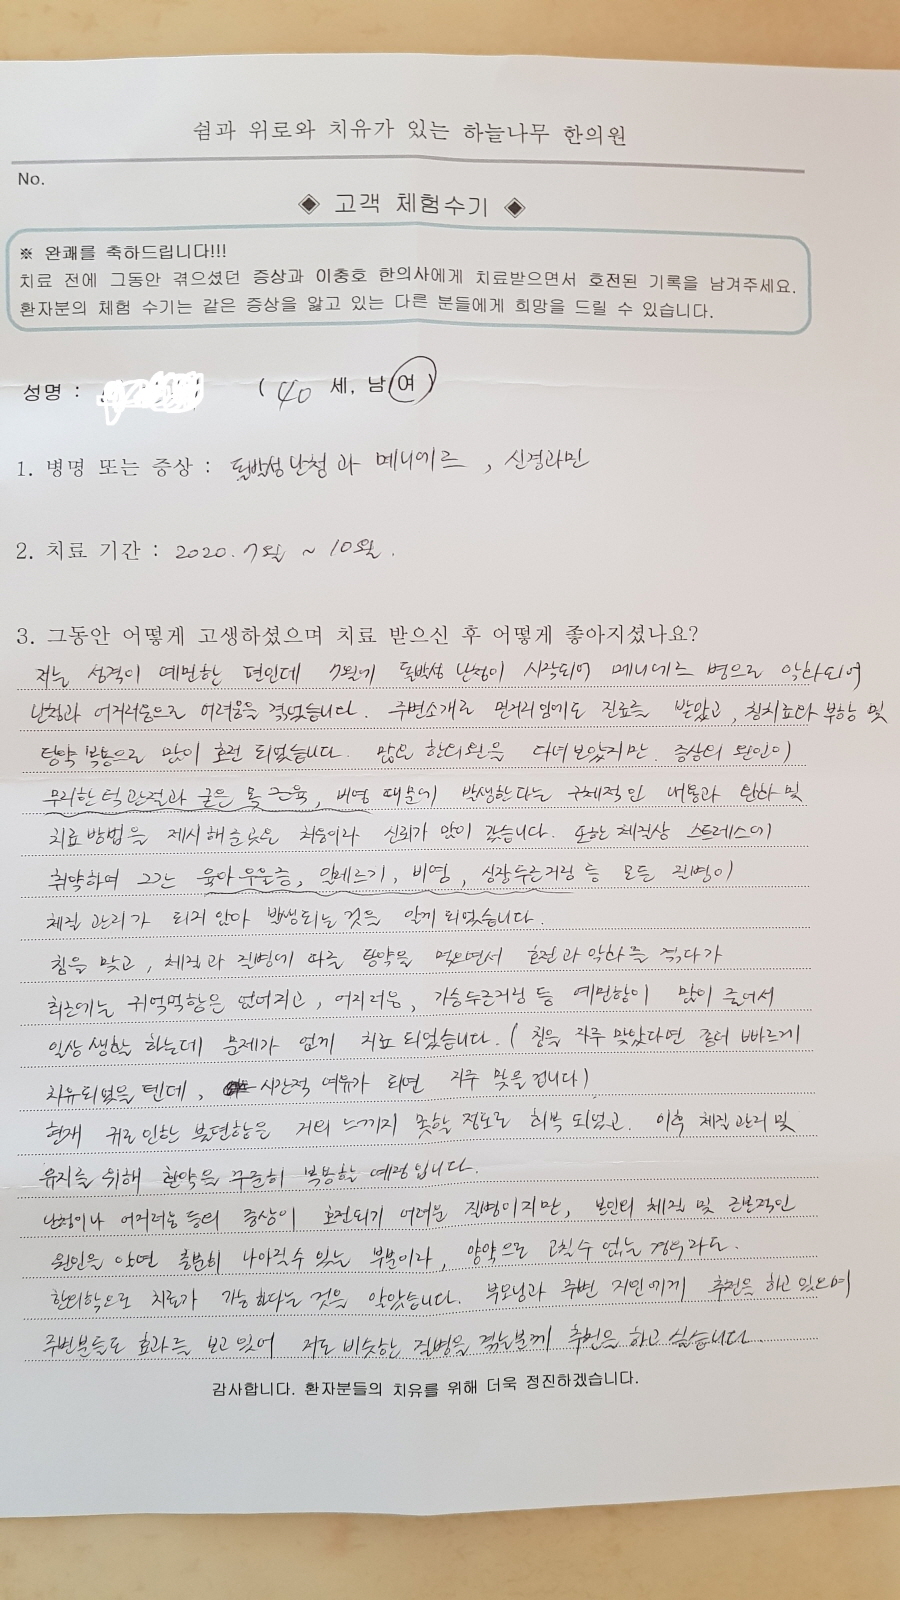 쉼과 위로와 치유가 있는 하늘나무 한의원
No.
◈ 고객 체험수기 ◈
※ 완쾌를 축하드립니다!!!
치료 전에 그동안 겪으셨던 증상과 이충호 한의사에게 치료받으면서 호전된 기록을 남겨주세요.
환자분의 체험 수기는 같은 증상을 앓고 있는 다른 분들에게 희망을 드릴 수 있습니다.
성명 : ( 40 세, 남/여 )
1. 병명 또는 증상 : 돌발성난청과 메니에르 , 신경과민
2. 치료 기간 : 2020. 7월 ~ 10월.
3. 그동안 어떻게 고생하셨으며 치료 받으신 후 어떻게 좋아지셨나요?
저는 성격이 예민한 편인데 7월에 돌발성 난청이 시작되어 메니에르 병으로 악화되어
난청과 어지러움으로 어려움을 겪었습니다. 주변소개로 먼거리임에도 진료를 받았고, 침치료와 부항 및
탕약 복용으로 많이 호전 되었습니다. 많은 한의원을 다녀보았지만 증상의 원인이
무리한 턱관절과 굳은 목 근육, 비염 때문에 발생한다는 구체적인 내용과 완화 및
치료방법을 제시해준곳은 처음이라 신뢰가 많이 갔습니다. 또한 체질상 스트레스에
취약하여 그간 육아우울증, 알레르기, 비염, 심장두근거림 등 모든 질병이
체질 관리가 되지 않아 발생되는 것을 알게되었습니다.
침을 맞고, 체질과 질병에 따른 탕약을 먹으면서 호전과 악화를 겪다가
최근에는 귀먹먹함은 없어지고, 어지러움, 가슴두근거림 등 예민함이 많이 줄어서
일상생활 하는데 문제가 없게 치료되었습니다. ( 침을 자주 맞았다면 좀더 빠르게
치유되었을텐데, 시간적 여유가 되면 자주 맞을겁니다)
현재 귀로인한 불편함은 거의 느끼지 못할 정도로 회복 되었고. 이후 체질관리 및
유지를 위해 환약을 꾸준히 복용할 예정입니다.
난청이나 어지러움 등의 증상이 호전되기 어려운 질병이지만, 본인의 체질 및 근본적인
원인을 알면 충분히 나아질수 있는 부분이라, 양약으로 고칠수 없는 경우라도.
한의학으로 치료가 가능하다는 것을 알았습니다. 부모님과 주변 지인에게 추천을 하고 있으며
주변분들도 효과를 보고 있어 저도 비슷한 질병을 겪는분께 추천을 하고 싶습니다.
감사합니다. 환자분들의 치유를 위해 더욱 정진하겠습니다.